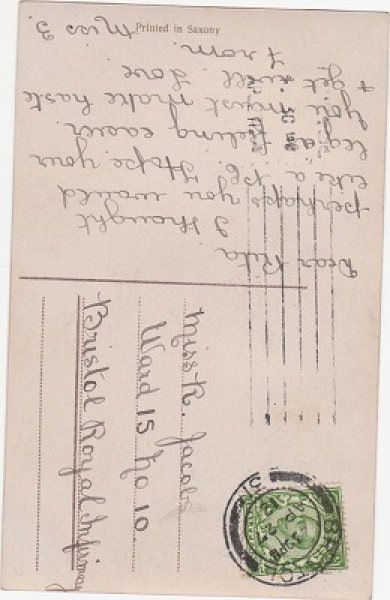 Printed in Saxony
Dear Rita
I thought
perhaps you would
like a P.C. Hope your
leg is feeling easier.
You must make haste
& get well. Love
from.
Miss
Miss R. Jacobs
Ward 15 No 10
Bristol Royal Infirmary
BRISTOL
AP 27
12